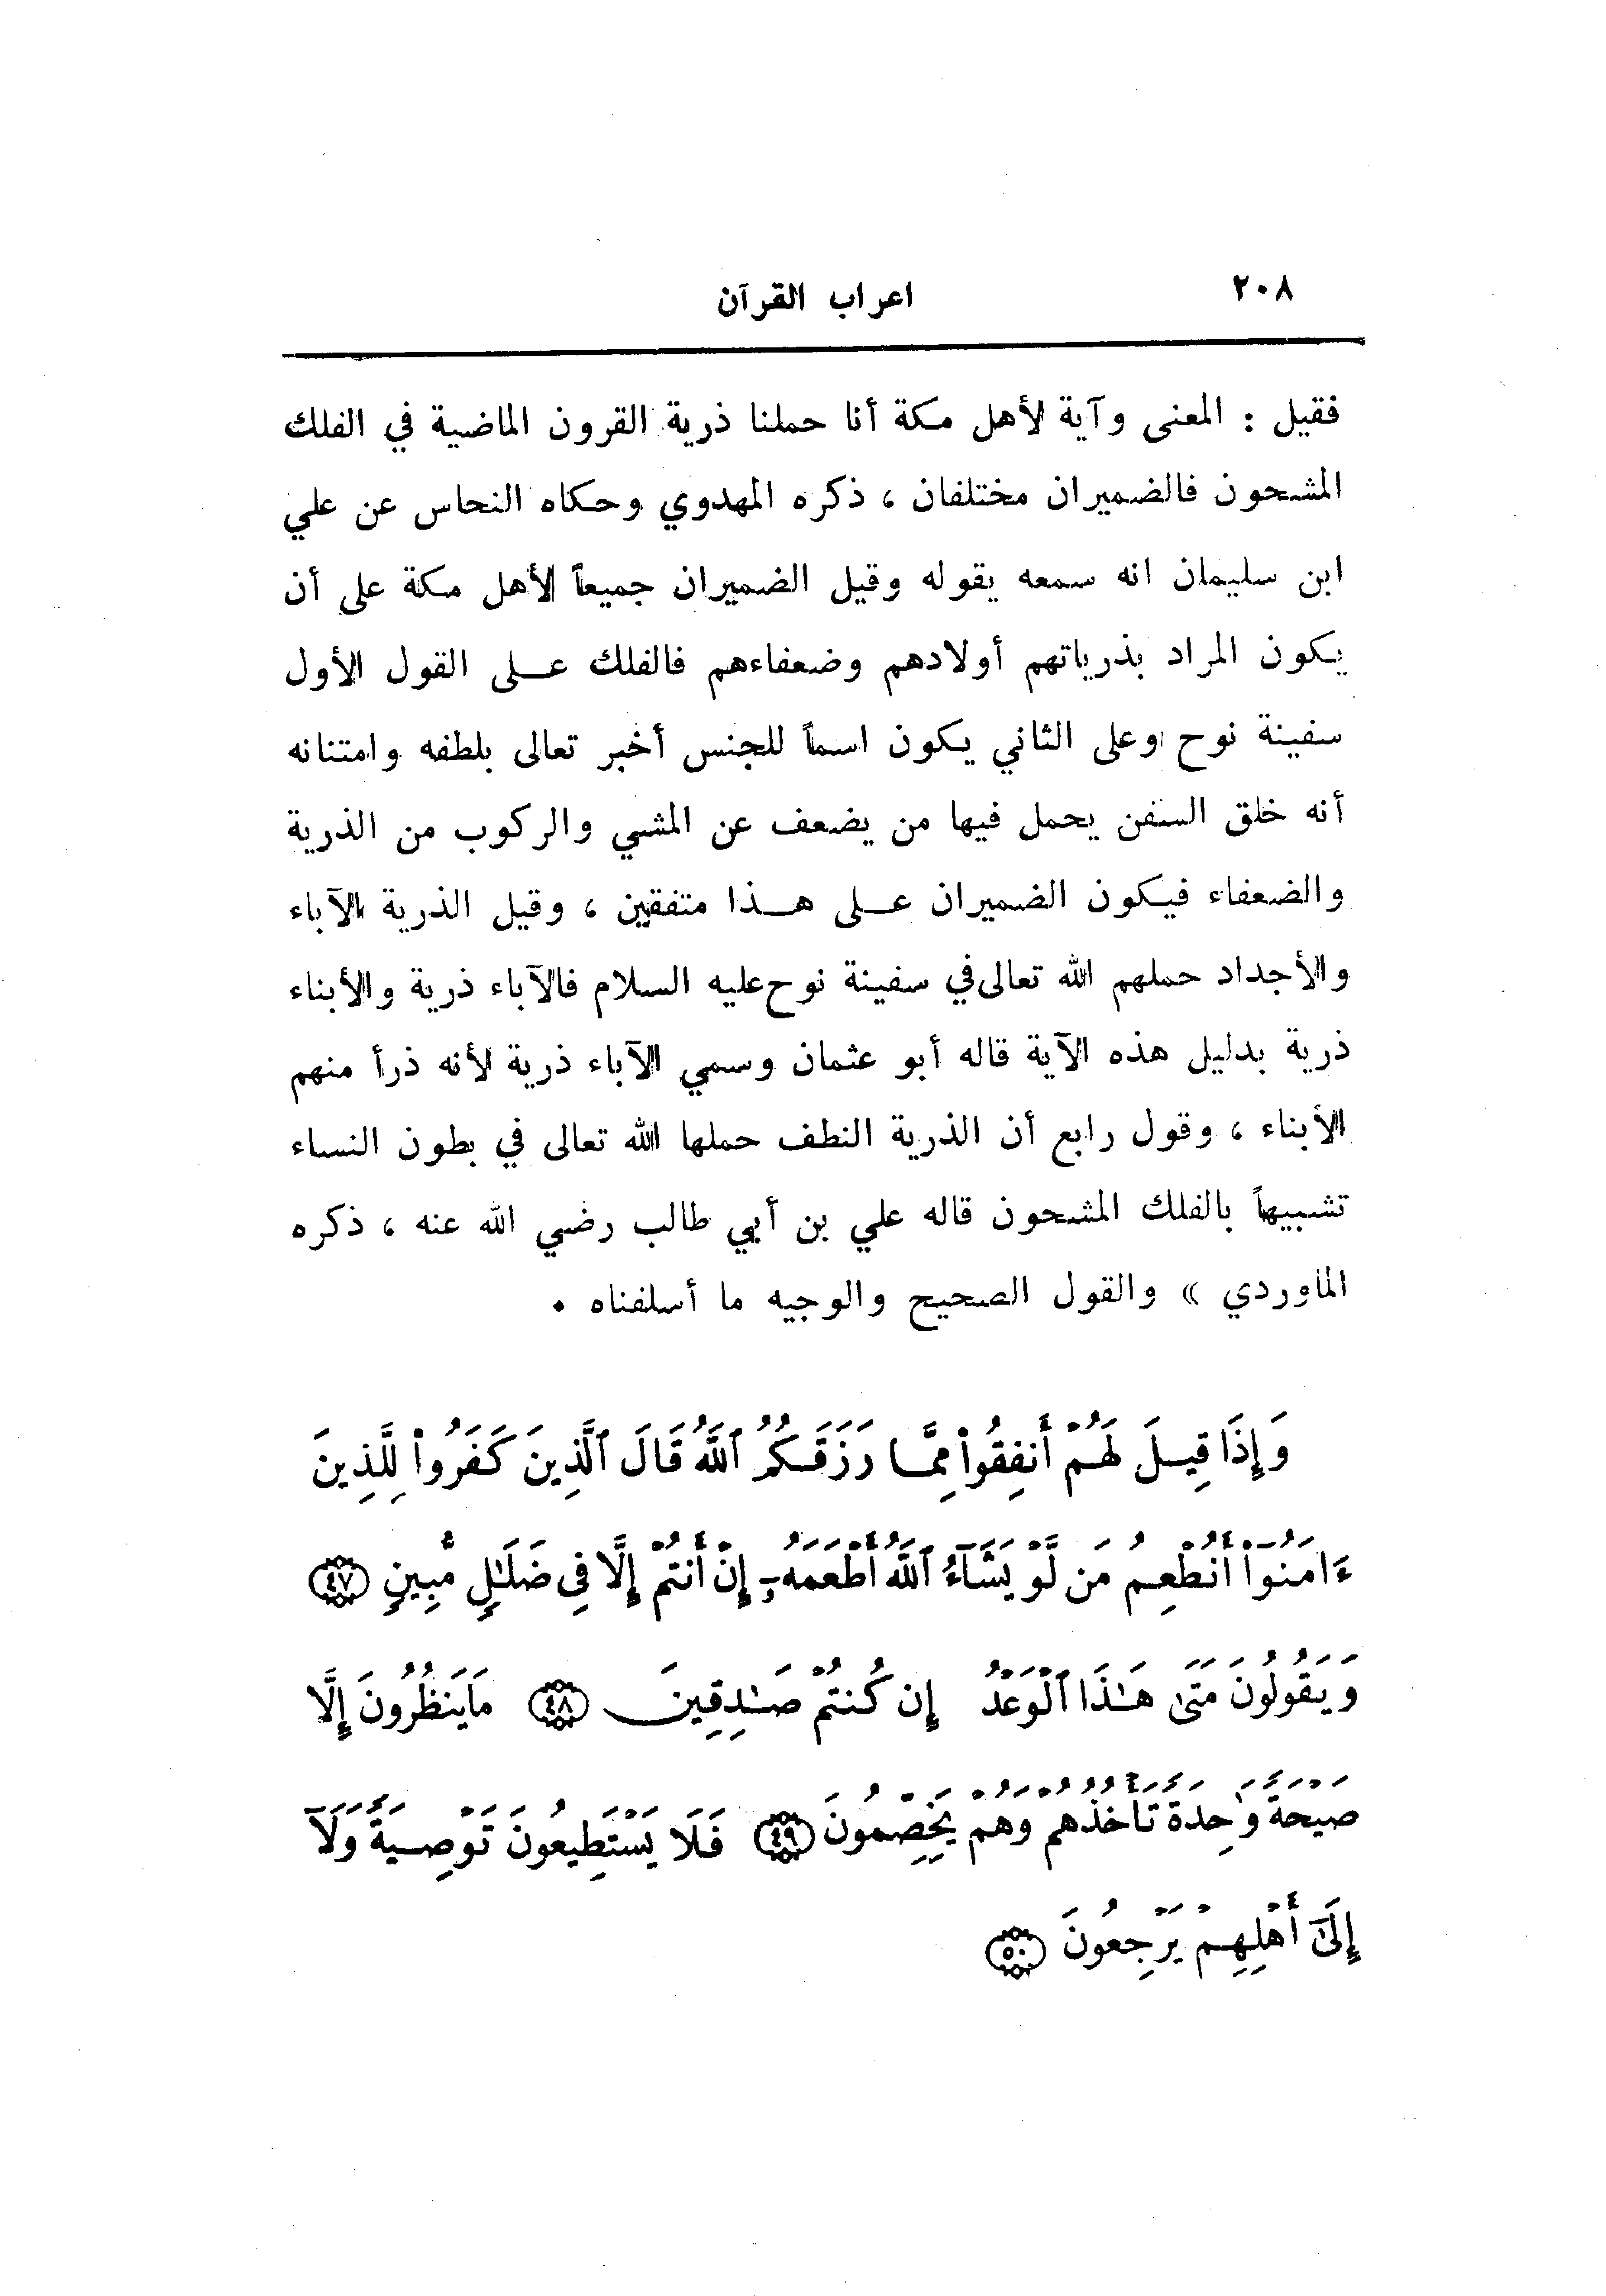 ٢٠٨
اعراب القرآن
فقيل : المعنى وآية لأهل مكة أنا حملنا ذرية القرون الماضية في الفلك
المشحون فالضميران مختلفان ، ذكره المهدوي وحكاه النحاس عن علي
ابن سليمان انه سمعه يقوله وقيل الضميران جميعاً لأهل مكة على أن
يكون المراد بذرياتهم أولادهم وضعفاءهم فالفلك على القول الأول
سفينة نوح وعلى الثاني يكون اسماً للجنس أخبر تعالى بلطفه وامتنانه
أنه خلق السفن يحمل فيها من يضعف عن المشي والركوب من الذرية
والضعفاء فيكون الضميران على هذا متفقين ، وقيل الذرية الآباء
والأجداد حملهم الله تعالى في سفينة نوح عليه السلام فالآباء ذرية والأبناء
ذرية بدليل هذه الآية قاله أبو عثمان وسمي الآباء ذرية لأنه ذرأ منهم
الأبناء ، وقول رابع أن الذرية النطف حملها الله تعالى في بطون النساء
تشبيهاً بالفلك المشحون قاله علي بن أبي طالب رضي الله عنه ، ذكره
الماوردي » والقول الصحيح والوجيه ما أسلفناه •
وَإِذَا قِيلَ لَهُمْ أَنفِقُوا۟ مِمَّا رَزَقَكُمُ ٱللَّهُ قَالَ ٱلَّذِينَ كَفَرُوا۟ لِلَّذِينَ
ءَامَنُوٓا۟ أَنُطْعِمُ مَن لَّوْ يَشَآءُ ٱللَّهُ أَطْعَمَهُۥٓ إِنْ أَنتُمْ إِلَّا فِى ضَلَـٰلٍ مُّبِينٍ ﴿٤٧﴾
وَيَقُولُونَ مَتَىٰ هَـٰذَا ٱلْوَعْدُ إِن كُنتُمْ صَـٰدِقِينَ ﴿٤٨﴾ مَا يَنظُرُونَ إِلَّا
صَيْحَةً وَٰحِدَةً تَأْخُذُهُمْ وَهُمْ يَخِصِّمُونَ ﴿٤٩﴾ فَلَا يَسْتَطِيعُونَ تَوْصِيَةً وَلَآ
إِلَىٰٓ أَهْلِهِمْ يَرْجِعُونَ ﴿٥٠﴾